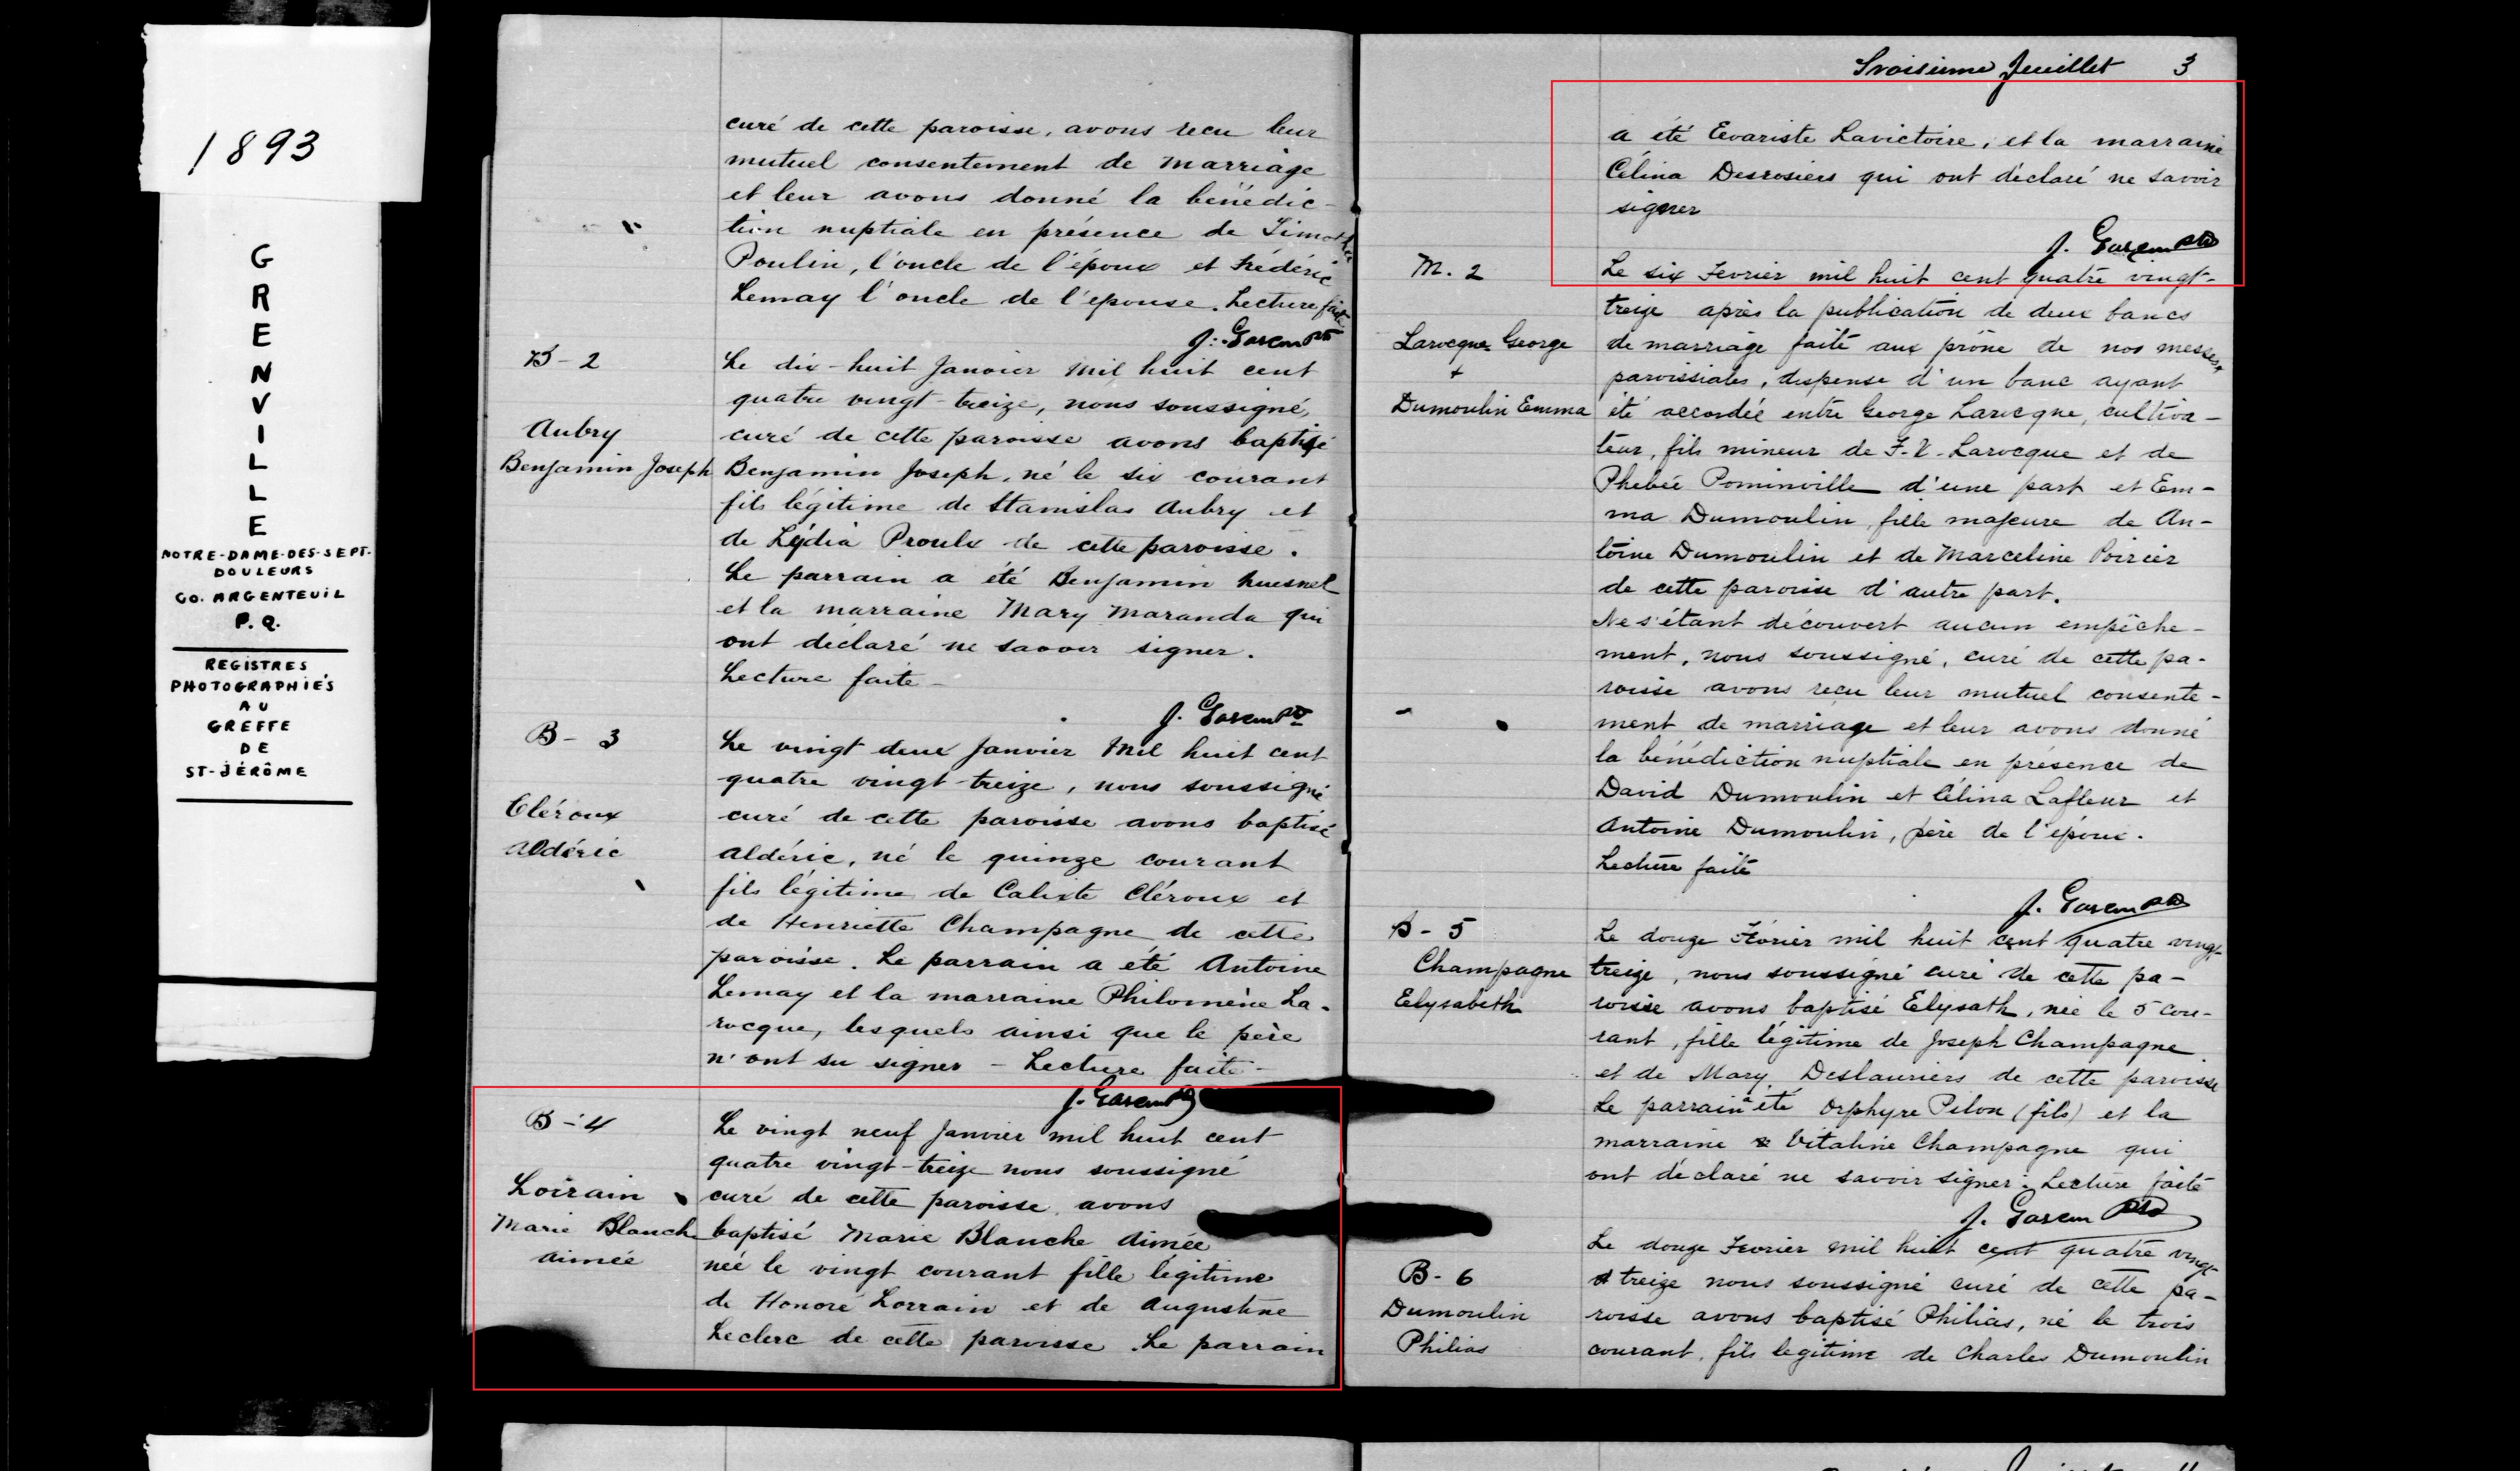 1893
GRENVILLE
NOTRE-DAME-DES-SEPT-
DOULEURS
CO. ARGENTEUIL
P. Q.
REGISTRES
PHOTOGRAPHIÉS
AU
GREFFE
DE
ST-JÉRÔME
curé de cette paroisse, avons recu leur
mutuel consentement de marriage
et leur avons donné la bénédic-
tion nuptiale en présence de Timothée
Poulin, l'oncle de l'époux et Frédéric
Lemay l'oncle de l'epouse. Lecture faite
B-2
Aubry
Benjamin Joseph
Le dix-huit Janvier mil huit cent
quatre vingt-treize, nous soussigné,
curé de cette paroisse avons baptisé
Benjamin Joseph, né le six courant
fils légitime de Stanislas Aubry et
de Lydia Proulx de cette paroisse.
Le parrain a été Benjamin huesnel
et la marraine Mary Maranda qui
ont déclaré ne savoir signer.
Lecture faite-
B-3
Cléroux
Aldéric
Le vingt deux Janvier Mil huit cent
quatre vingt-treize, nous soussigné
curé de cette paroisse avons baptisé
Aldéric, né le quinze courant
fils légitime de Calixte Cléroux et
de Henriette Champagne de cette
paroisse. Le parrain a été Antoine
Lemay et la marraine Philomène La-
rocque, lesquels ainsi que le père
n'ont su signer - Lecture faite-
B-4
Lorrain
Marie Blanche
aimée
Le vingt neuf Janvier mil huit cent
quatre vingt-treize nous soussigné
curé de cette paroisse, avons
baptisé Marie Blanche Aimée
née le vingt courant fille légitime
de Honoré Lorrain et de Augustine
Leclerc de cette paroisse. Le parrain
Troisième feuillet 3
a été Evariste Lavictoire, et la marraine
Célina Desrosiers qui ont déclaré ne savoir
signer
M. 2
Larocque George
+
Dumoulin Emma
Le six Fevrier mil huit cent quatre vingt-
treize après la publication de deux bancs
de marriage faite aux prône de nos messes
paroissiales, dispense d'un banc ayant
été accordée entre George Larocque, cultiva-
teur, fils mineur de F.V. Larocque et de
Phebée Pominville d'une part et Em-
ma Dumoulin, fille majeure de An-
toine Dumoulin et de Marceline Poirier
de cette paroisse d'autre part.
Ne s'étant découvert aucun empêche-
ment, nous soussigné, curé de cette pa-
roisse avons reçu leur mutuel consente-
ment de marriage et leur avons donné
la bénédiction nuptiale en présence de
David Dumoulin et Célina Lafleur et
Antoine Dumoulin, père de l'époux.
Lecture faite
B-5
Champagne
Eelysabeth
Le douze Février mil huit cent quatre vingt-
treize, nous soussigné curé de cette pa-
roisse avons baptisé Eelysath, née le 5 cou-
rant, fille légitime de Joseph Champagne
et de Mary Deslauriers de cette paroisse
Le parrain a été Orphyre Pilon (fils) et la
marraine Vitaline Champagne qui
ont déclaré ne savoir signer. Lecture faite
B-6
Dumoulin
Philias
Le douze Fevrier mil huit cent quatre vingt-
treize nous soussigné curé de cette pa-
roisse avons baptisé Philias, né le trois
courant, fils legitime de Charles Dumoulin